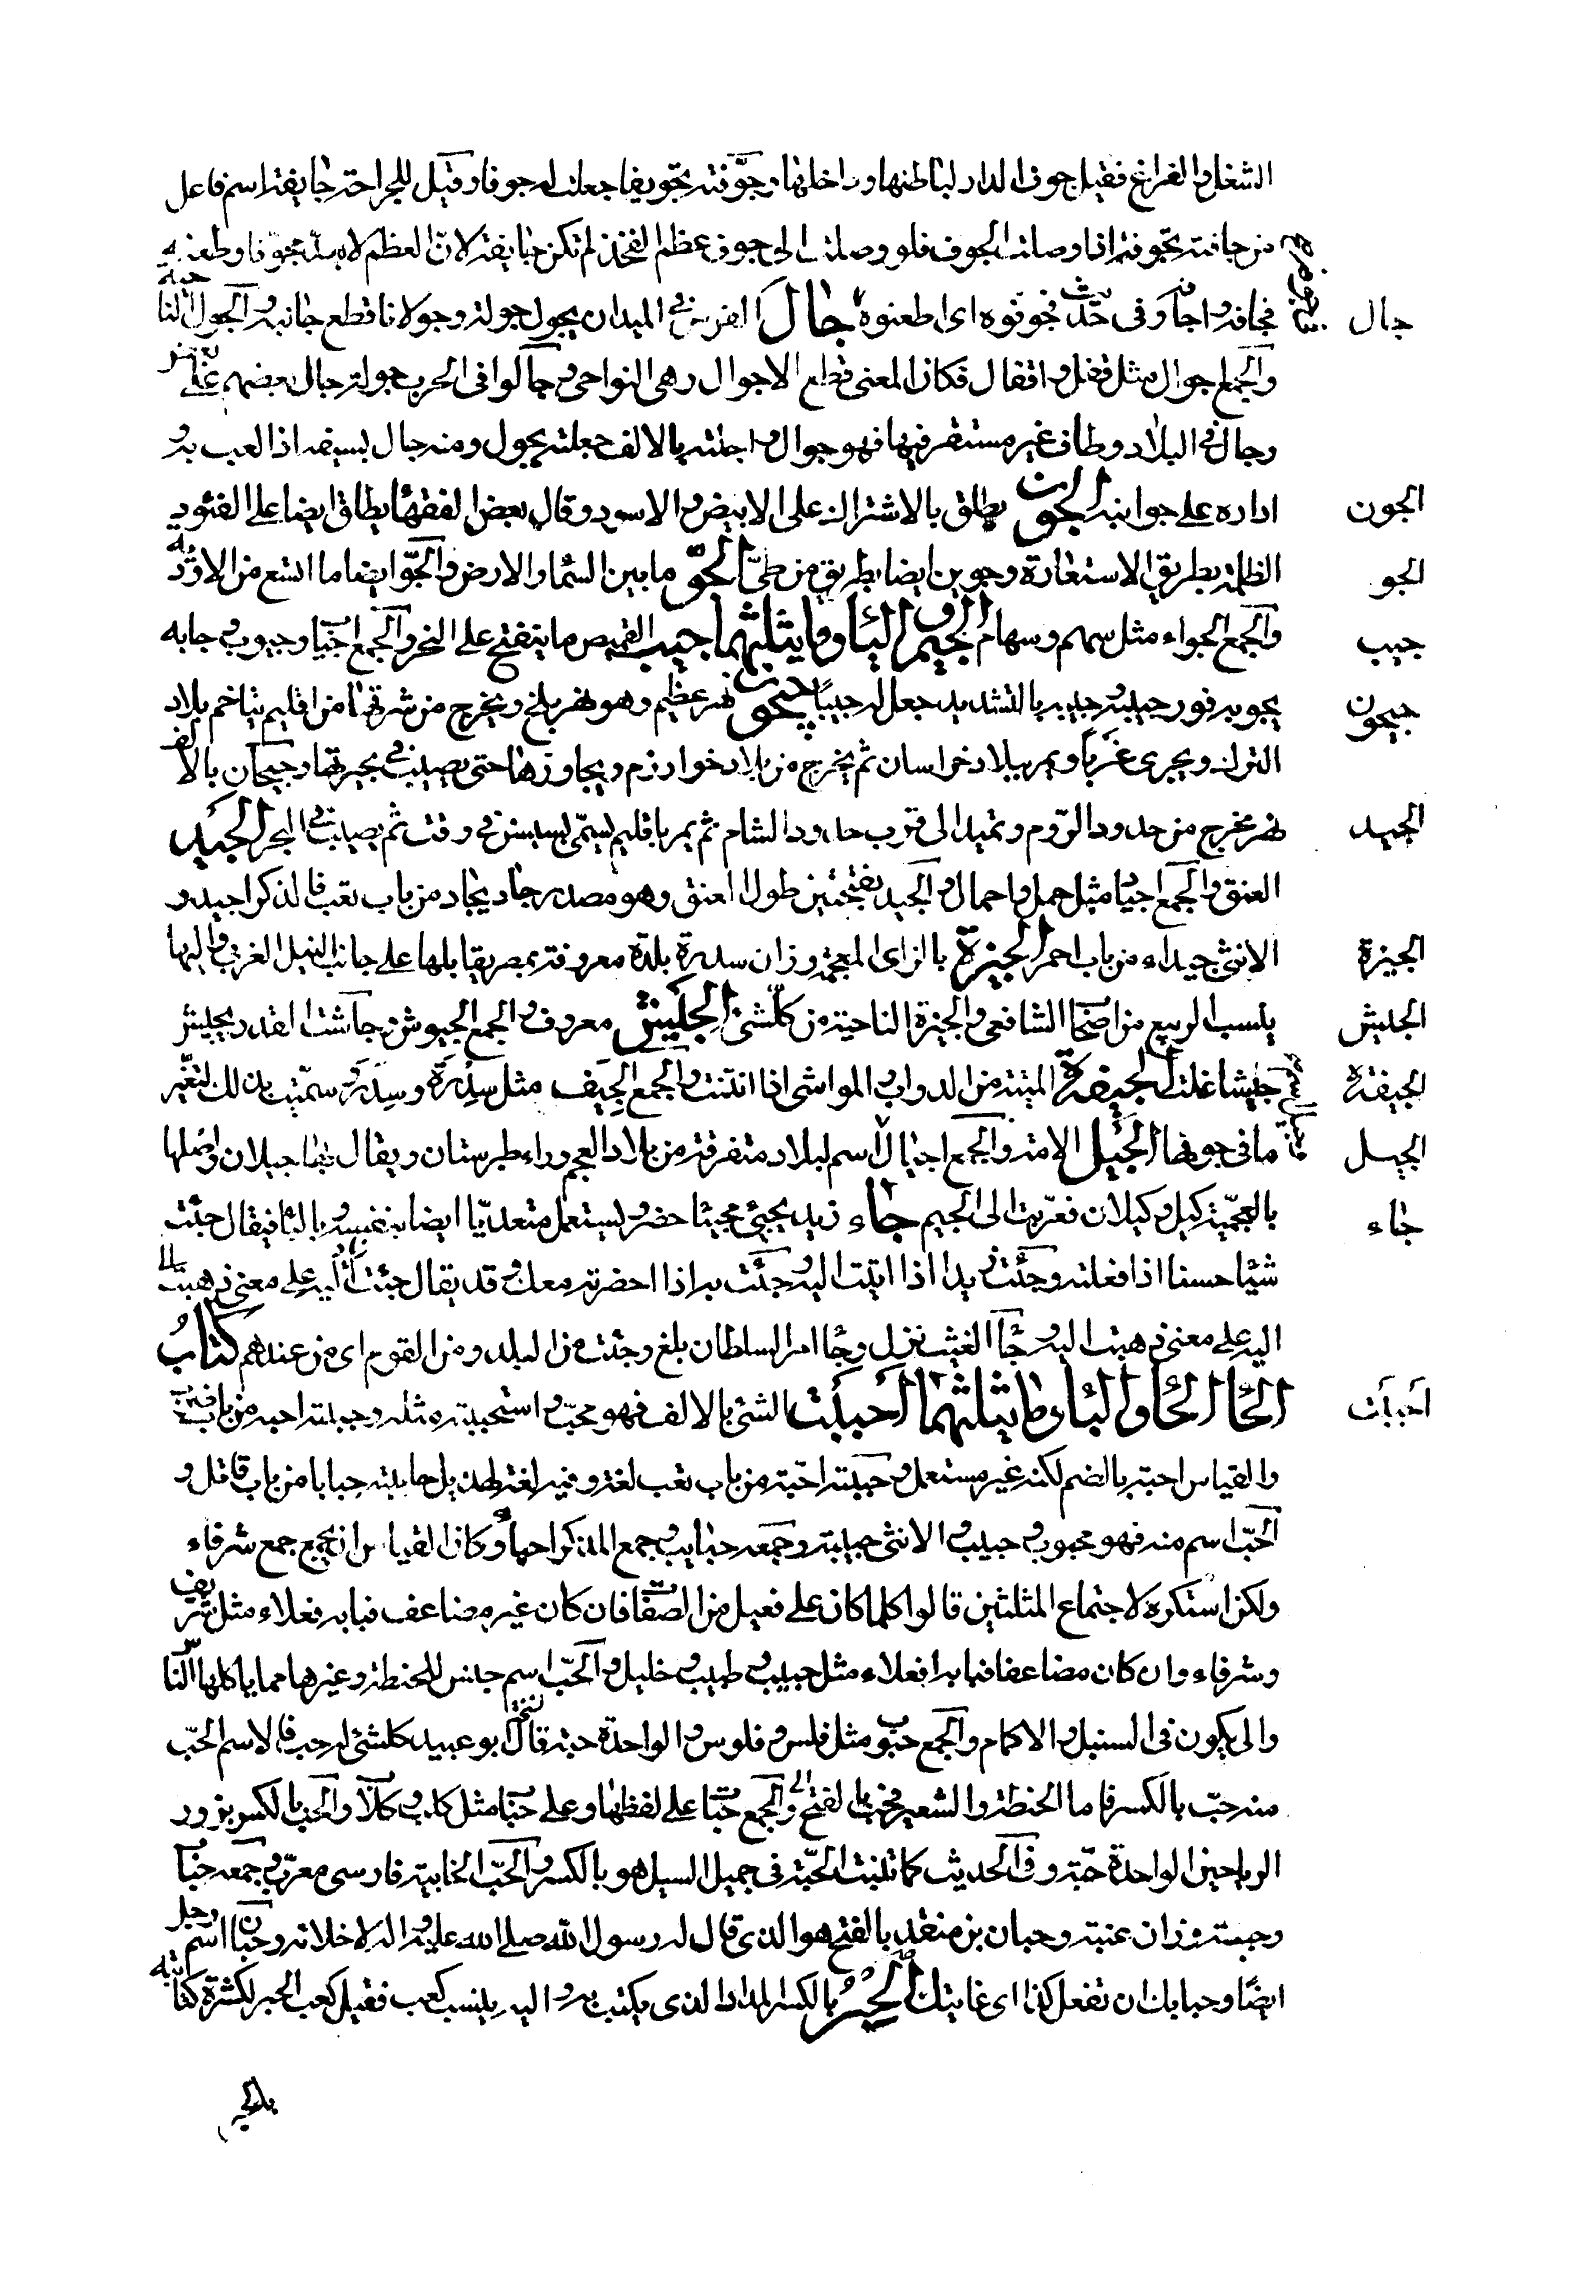 الشغل والفراغ فقيل جوف الدار لباطنها وداخلها وجوّفته تجويفا جعلت له جوفا وقيل للجراحة جايفة اسم فاعل
من جافته تجوفه اذا وصلت الجوف فلو وصلت الى جوف عظم الفخذ لم تكن جايفة لانّ العظم لا يعدّ مجوّفا وطعنه
جال
فجافه واجافه وفى حديث فجوّفوه اى اطعنوه جال الفرس فى الميدان يجول جولة وجولانا قطع جانبه والجول الناحية
والجمع اجوال مثل قفل واقفال فكان المعنى قطع الاجوال وهى النواحى وجالوا فى الحرب جولة جال بعضهم على بعض
وجال فى البلاد وطاف غير مستقر فيها فهو جوال واجلته بالالف جعلته يجول ومنه جال بسيفه اذا لعب به و
الجون
اداره على جوانبه الجون يطلق بالاشتراك على الابيض والاسود وقال بعض الفقهاء يطلق ايضا على الضوء و
الجو
الظلمة بطريق الاستعارة وجوين ايضا بطريق من طىّ الجوّ ما بين السماء والارض والجوّ ايضا ما اتسع من الاودية
جيب
والجمع الجواء مثل سهم وسهام الجيم والياء وما يثلثهما جيب القميص ما ينفتح على النحر والجمع اجياب وجيوب وجابه
جيحون
يجوبه قور جيبه وجيبه بالتشديد جعل له جيبًا جيحون نهر عظيم وهو نهر بلخ ويخرج من شرقها من اقليم يتاخم بلاد
الترك ويجرى غربا ويمر ببلاد خراسان ثم يخرج من بلاد خوارزم ويجاوزها حتى يصب فى بحيرتها وجيحان بالالف
الجيد
نهر مخرج من حدود الرّوم ويمتد الى قرب حدود الشام ثم يمر باقليم يسمّى بسيس فى وقت ثم يصب فى البحر الجيد
العنق والجمع اجياد مثل حمل واحمال والجيد بفتحتين طول العنق وهو مصدر جاد يجاد من باب تعب فالذكر اجيد و
الجيزة
الانثى جيداء من باب احمر الجيزة بالزاى المعجمة وزان سدرة بلدة معروفة بمصر يقابلها على جانب النيل الغربى واليها
الجيش
ينسب الربيع من اصحاب الشافعى والجيزة الناحية من كل شئ الجيش معروف والجمع الجيوش وجاشت القدر تجيش
الجيفة
جيشا غلت الجيفة الميتة من الدواب والمواشى اذا انتنت والجمع الجيف مثل سدرة وسدر وسميت بذلك لتغيّر
الجيل
ما فى جوفها الجيل الامة والجمع اجيال اسم لبلاد متفرقة من بلاد العجم وراء طبرستان ويقال لها جيلان واصلها
جاء
بالعجمية كيل وكيلان فعربت الى الجيم جاء زيد يجيئ مجيئا حضر ويستعمل متعديّا ايضا بنفسه وبالباء فيقال جئت
شيئا حسنا اذا فعلته وجئت زيدا اذا اتيت اليه وجئت به اذا احضرته معك وقد يقال جئت اليه على معنى ذهبت
اليه على معنى ذهبت اليه وجاء الغيث نزل وجاء امر السلطان بلغ وجئت من البلد ومن القوم اى من عندهم كتاب
احببت
الحاء الحاء والباء وما يثلثهما احببت الشئ بالالف فهو محبّ واستحببته مثله وحببته احبه من باب ضرب
والقياس احبه بالضم لكنه غير مستعمل وحببته احبّه من باب تعب لغة وفيه لغة لهذيل حاببته حبابا من باب قاتل و
الحبّ اسم منه فهو محبوب وحبيب والانثى حبيبة وجمعه حبايب وجمع المذكر احباء وكان القياس ان يجمع جمع شرفاء
ولكن استكره لاجتماع المثلثين قالوا كلما كان على فعيل من الصفات فان كان غير مضاعف فبابه فعلاء مثل شريف
وشرفاء وان كان مضاعفا فبابه افعلاء مثل حبيب وطبيب وخليل والحبّ اسم جنس للحنطة وغيرها مما ياكلها الناس
والى يكون فى السنبل والاكمام والجمع حبوب مثل فلس وفلوس والواحدة حبة قال ابو عبيد كل شئ له حب فالاسم الحبّ
منه حبّ بالكسر فاما الحنطة والشعير فحب بالفتح والجمع حبات على لفظها وعلى حباب مثل كلب وكلاب والحب بالكسر بزور
الرياحين الواحدة حبّة وفى الحديث كما تنبت الحبّة فى حميل السيل هو بالكسر والحبّ الخابية فارسى معرّب وجمعه حباب
وحببة وزان عنبة وحبان بن منقذ بالفتح هو الذى قال له رسول الله صلى الله عليه واله لا خلابة وحبان اسم رجل
ايضًا وحبابك ان تفعل كذا اى غايتك الحبر بالكسر المداد الذى يكتب به واليه ينسب كعب فقيل كعب الحبر لكثرة كتابته
بالحبر